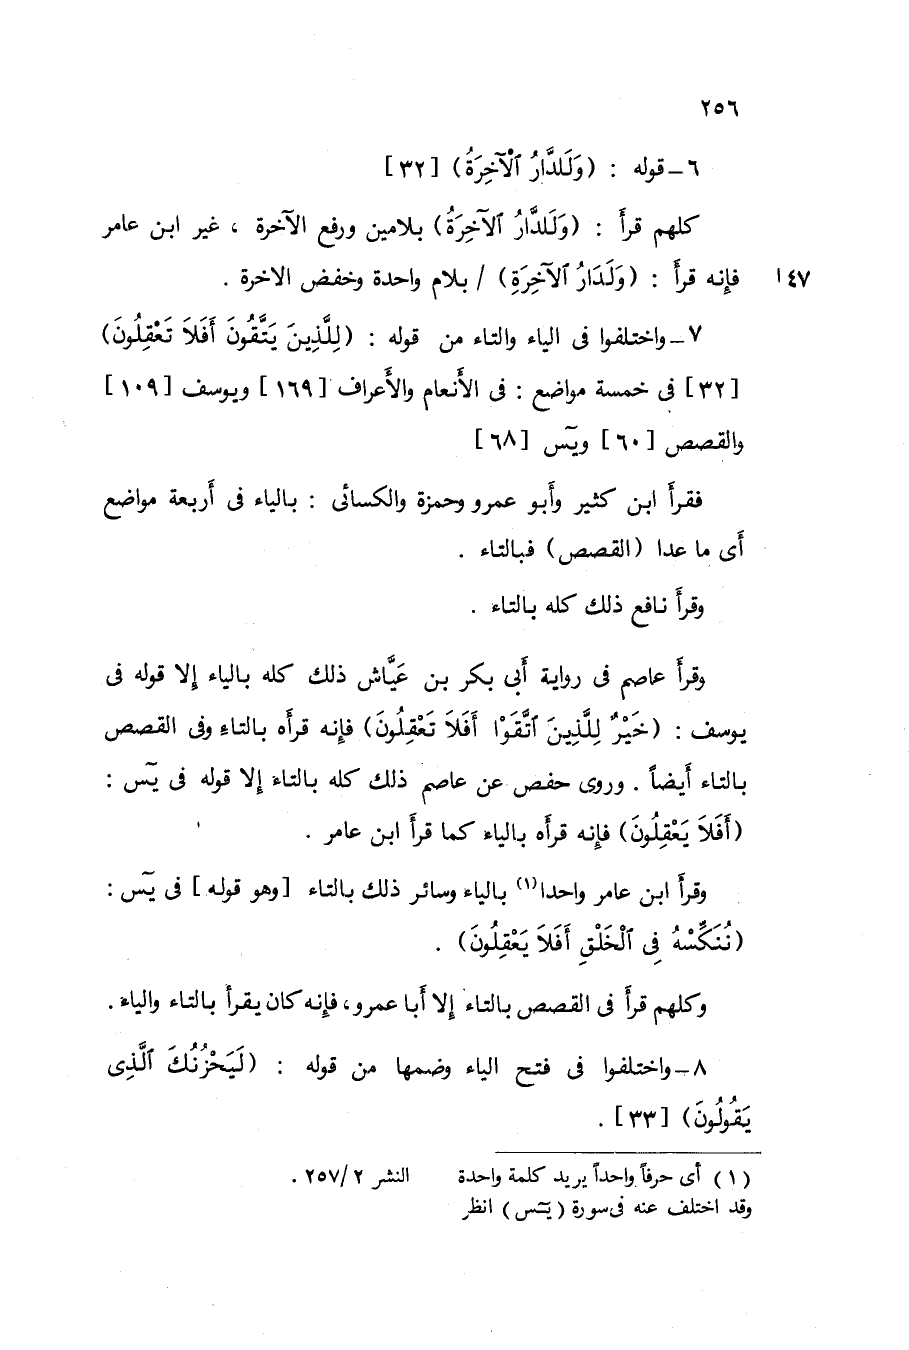 ٢٥٦
٦ـ قوله : (وَلَلدَّارُ ٱلْآخِرَةُ) [٣٢]
كلهم قرأ : (وَلَلدَّارُ ٱلآخِرَةُ) بلامين ورفع الآخرة ، غير ابن عامر
١٤٧ فإنه قرأ : (وَلَدَارُ ٱلآخِرَةِ) / بلام واحدة وخفض الاخرة .
٧ـ واختلفوا فى الياء والتاء من قوله : (لِلَّذِينَ يَتَّقُونَ أَفَلاَ تَعْقِلُونَ)
[٣٢] فى خمسة مواضع : فى الأَنعام والأَعراف [١٦٩] ويوسف [١٠٩]
والقصص [٦٠] ويٓس [٦٨]
فقرأَ ابن كثير وأَبو عمرو وحمزة والكسائى : بالياء فى أَربعة مواضع
أَى ما عدا (القصص) فبالتاء .
وقرأَ نافع ذلك كله بالتاء .
وقرأَ عاصم فى رواية أَبى بكر بن عَيَّاش ذلك كله بالياء إِلا قوله فى
يوسف : (خَيْرٌ لِلَّذِينَ ٱتَّقَوْا أَفَلاَ تَعْقِلُونَ) فإِنه قرأَه بالتاءِ وفى القصص
بالتاء أَيضاً . وروى حفص عن عاصم ذلك كله بالتاء إِلا قوله فى يٓس :
(أَفَلاَ يَعْقِلُونَ) فإِنه قرأَه بالياء كما قرأَ ابن عامر .
وقرأَ ابن عامر واحدا(١) بالياء وسائر ذلك بالتاء [وهو قوله] فى يٓس :
(نُنَكِّسْهُ فِى ٱلْخَلْقِ أَفَلاَ يَعْقِلُونَ) .
وكلهم قرأَ فى القصص بالتاء إِلا أَبا عمرو، فإِنه كان يقرأ بالتاء والياء .
٨ـ واختلفوا فى فتح الياء وضمها من قوله : (لَيَحْزُنُكَ ٱلَّذِى
يَقُولُونَ) [٣٣] .
(١) أَى حرفاً واحداً يريد كلمة واحدة
وقد اختلف عنه فى سورة (يٓس) انظر
النشر ٢/٢٥٧ .